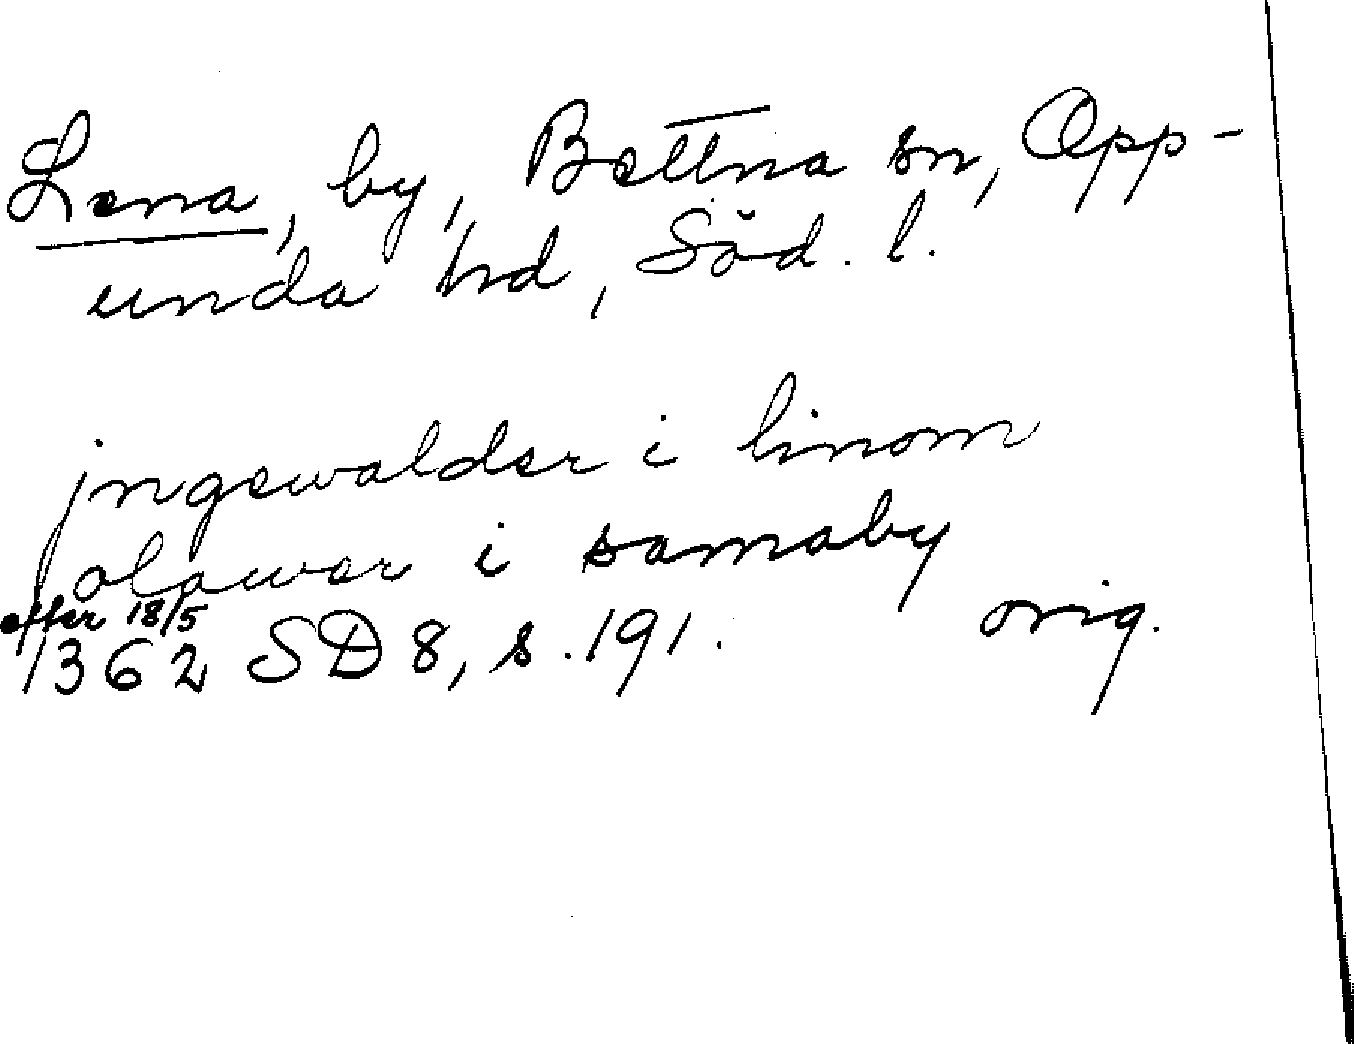 Lena, by, Bettna sn, Opp-
unda hd, Söd. l.
jngewalder i linom
olawer i samaby
efter 18/5
1362 SD 8, s. 191. orig.